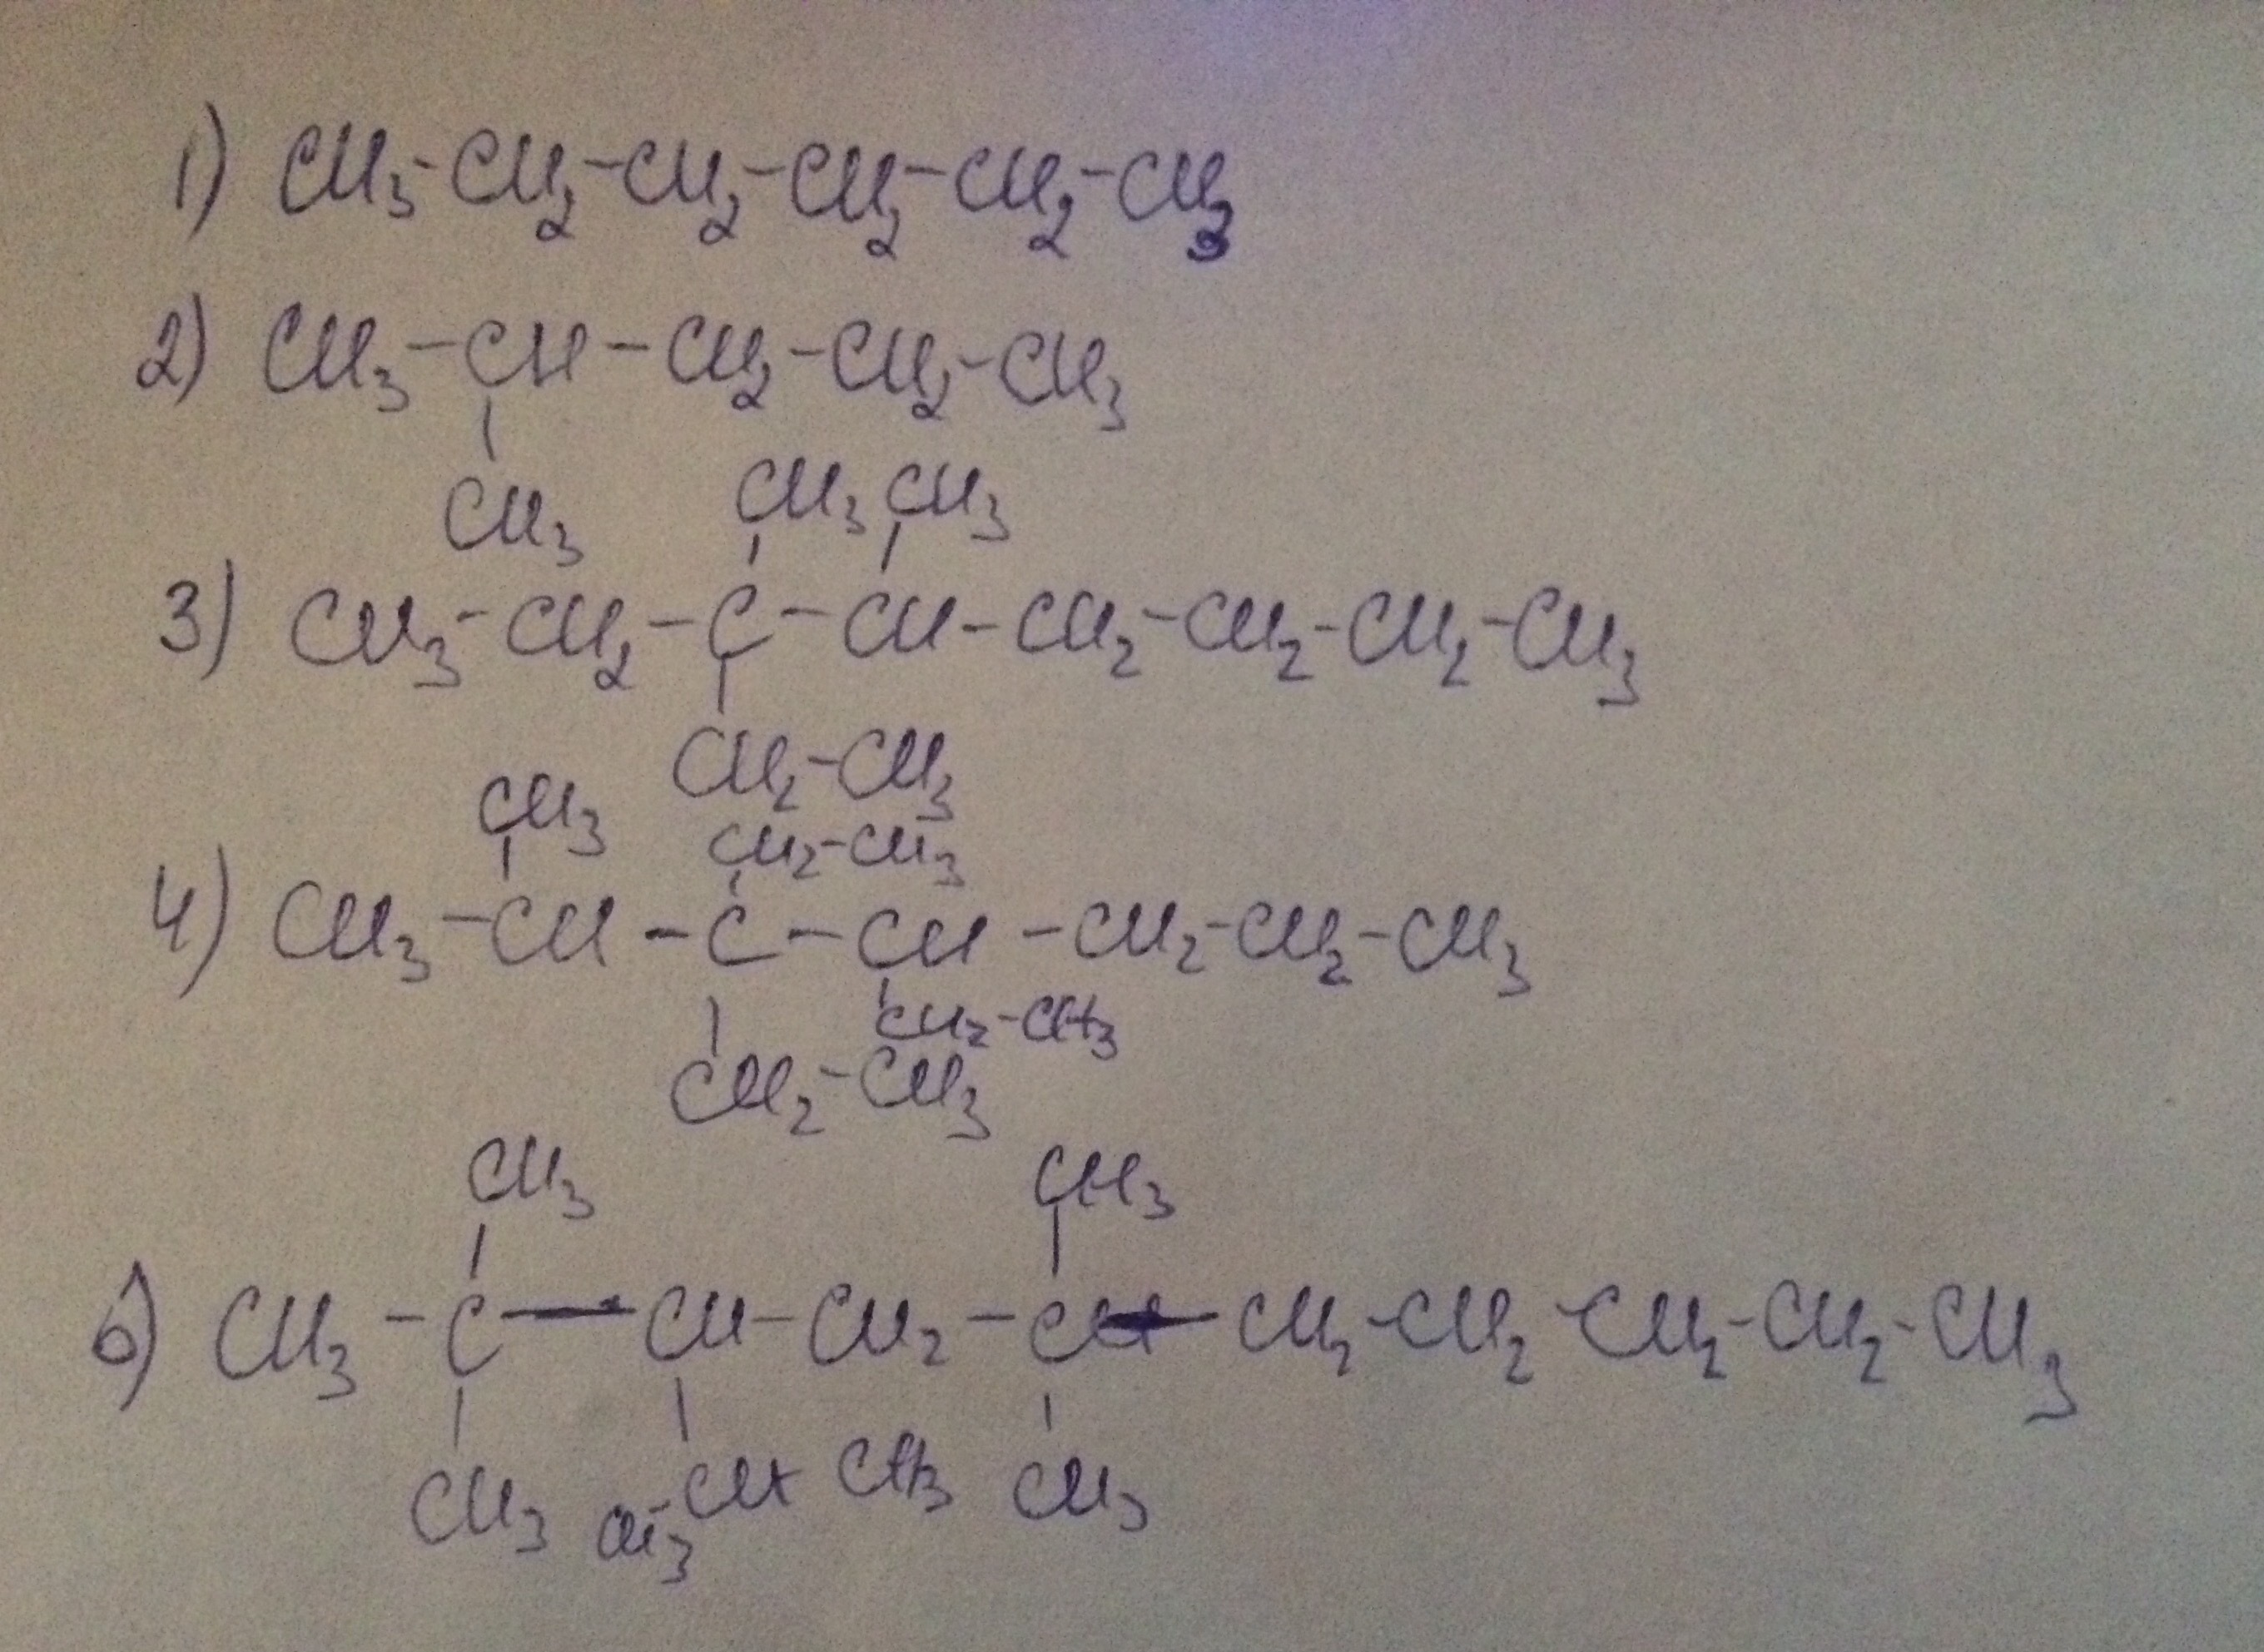 1) CH3-CH2-CH2-CH2-CH2-CH3
2) CH3-CH-CH2-CH2-CH3
CH3
CH3 CH3
3) CH3-CH2-C-CH-CH2-CH2-CH2-CH3
CH2-CH3
CH3
CH2-CH3
4) CH3-CH-C-CH-CH2-CH2-CH3
CH2-CH3
CH2-CH3
CH3 CH3
CH3-C-CH-CH2-C-CH2-CH2-CH2-CH2-CH3
CH3 CH3-CH CH3 CH3